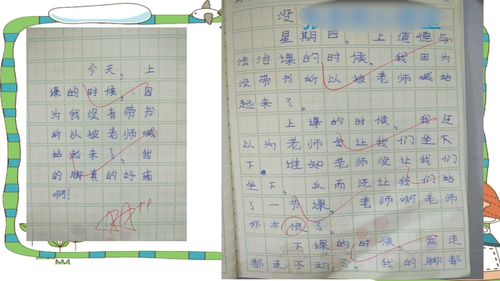 今天，上
课的时候，因
为我没有带书
所以被老师喊
站起来了，我
的脚真的好痛
啊！
没
星期四，上道德与
法治课的时候，我因为
没带书所以被老师喊站
起来了。
上课的时候，我还
以为老师会让我们坐下
下，谁知老师没让我们
坐下，反而还让我们站
了一节课，老师啊老师
你太恨了。
下课的时候，我走
都走不动了，我的脚都